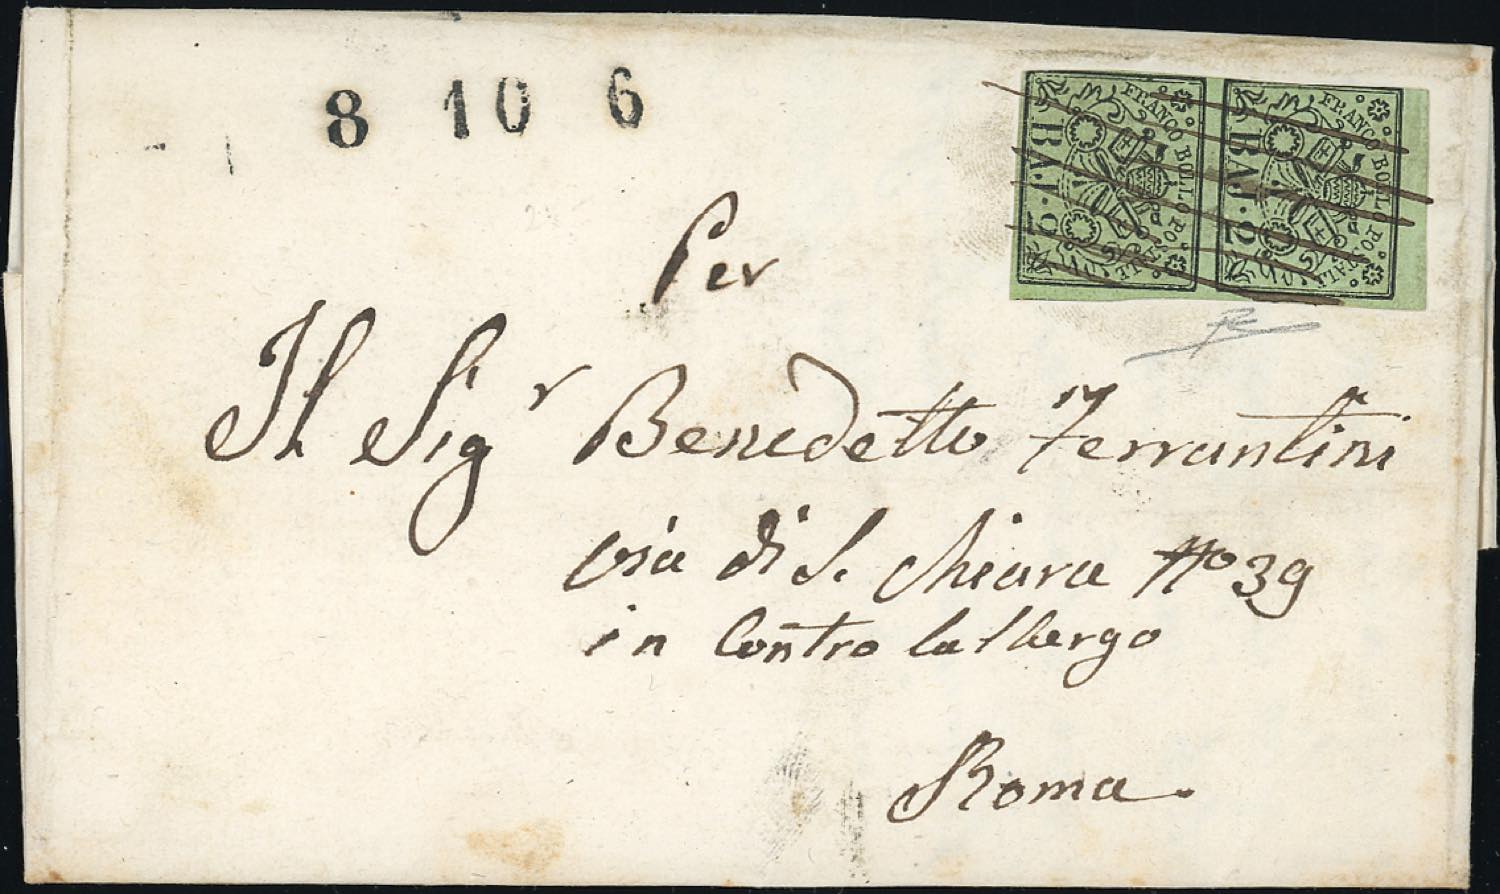 8 10 6
FRANCO BOLLO POSTALE
BAJ. 2
FRANCO BOLLO POSTALE
BAJ. 2
Per
Il Sigr Benedetto Ferrantini
via di S. Chiara No 39
in Contro lalbergo
Roma.